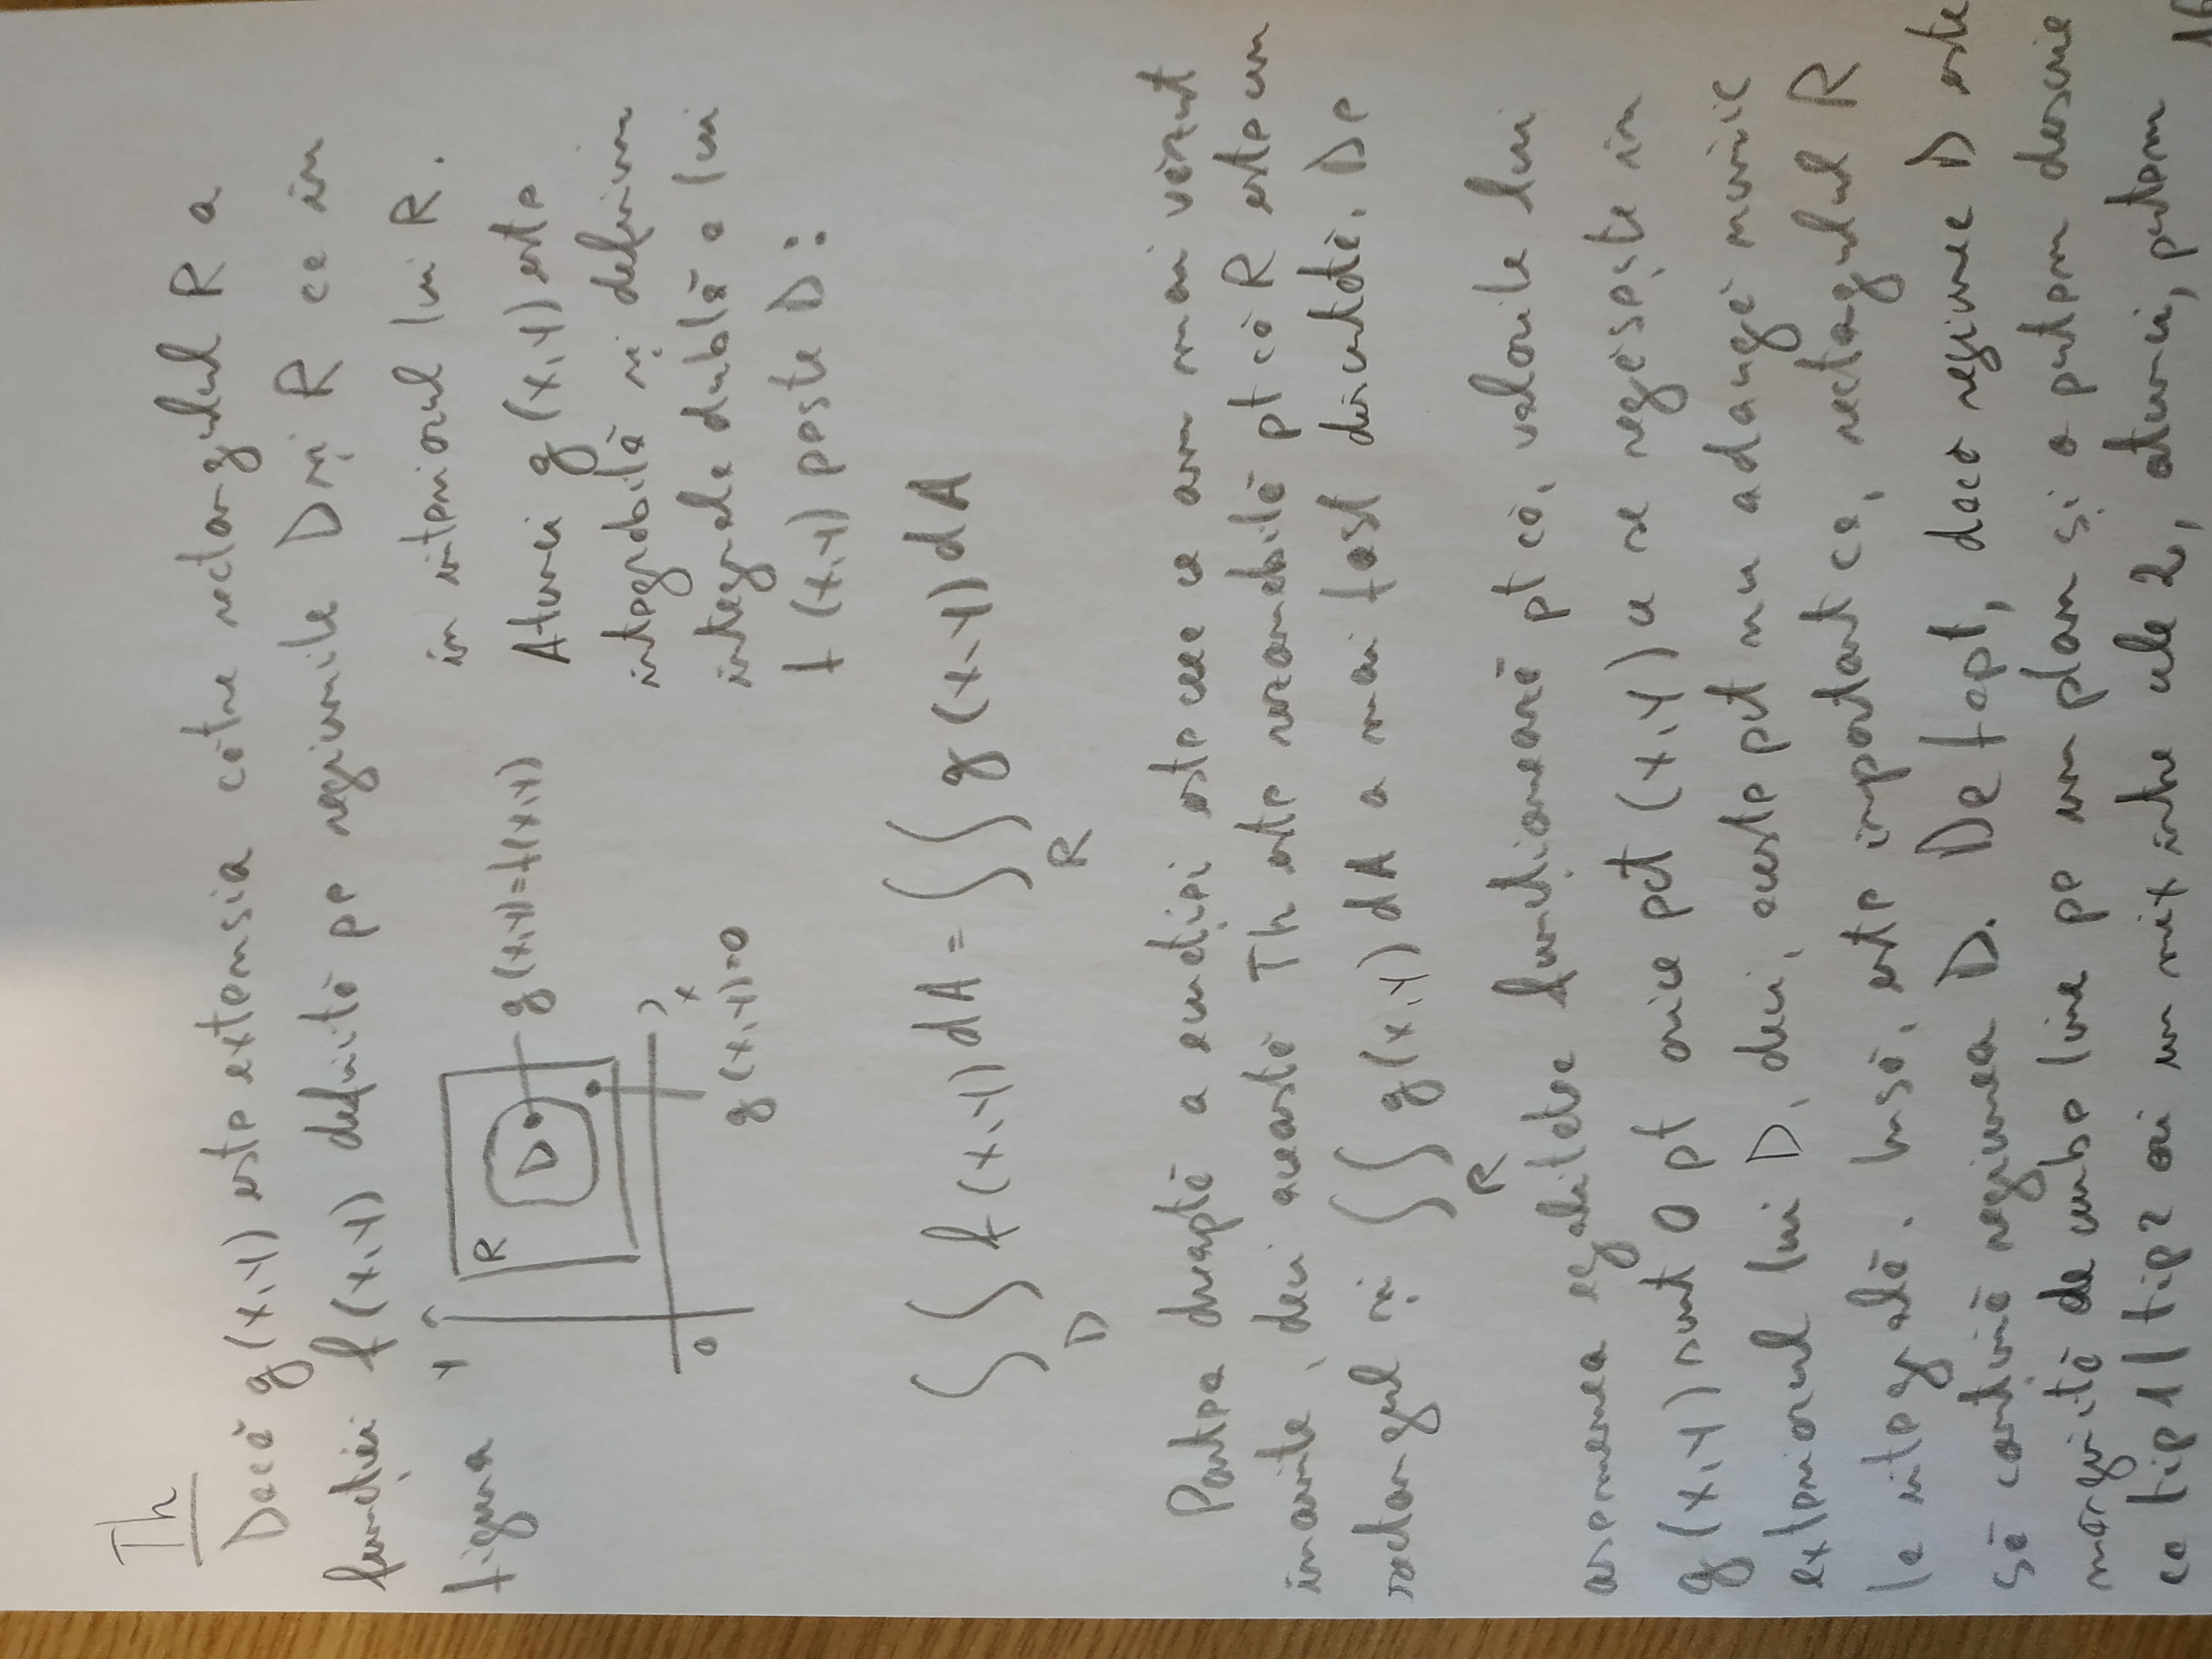 Th
Dacă g(x,y) este extensia către rectangulul R a
funcției f(x,y) definită pe regiunile D și R ca în
figura
în interiorul lui R.
y
R
D
g(x,y)=f(x,y)
Atunci g(x,y) este
integrabilă și definim
x
0
g(x,y)=0
integrala dublă a lui
f(x,y) peste D:
∫∫ f(x,y) dA = ∫∫ g(x,y) dA
D R
Partea dreaptă a ecuției este ceea ce am mai văzut
înainte, deci această Th este rezonabilă pt că R este un
rectangul și ∫∫ g(x,y) dA a mai fost discutată. De
R
asemenea egalitatea funcționează pt că, valorile lui
g(x,y) sunt 0 pt orice pct (x,y) ce se regăsește în
exteriorul lui D, deci, aceste pct nu adaugă nimic
la itegrală. Însă, este important ca, rectagulul R
să conțină regiunea D. De fapt, dacă regiunea D este
mărginită de curbe line pe un plan și o putem descrie
ca tip 1 / tip 2 ori un mix între cele 2, atunci, putem